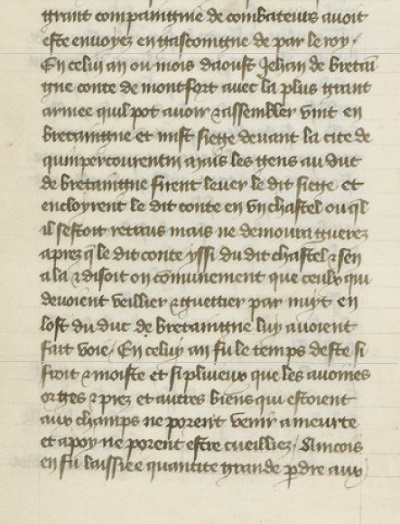 grant compaingnie de combateurs auoit
este enuoyez en gascoingne de par le roy.
En celui an ou mois daoust Jehan de bretai
gne conte de montfort auec la plus grant
armee quil pot auoir & assembler vint en
bretaingne et mist siege deuant la cite de
quimpercourentin mais les gens au duc
de bretaingne firent leuer le dit siege et
encloyrent le dit conte en vn chastel ou ql
il sestoit retrais mais ne demoura gueres
apres q le dit conte yssi du dit chastel & sen
ala & disoit on communement que ceulx qui
deuoient veillier & guettier par nuyt en
lost du duc de bretaingne luy auoient
fait voie. En celuy an fu le temps deste si
froit & moiste et si pluuieux que les auoines
orges & piez et autres biens qui estoient
aux champs ne porent venir a meurte
et apoy ne porent estre cueilliez. Aincois
en fu laissiee quantite grande pdre aux